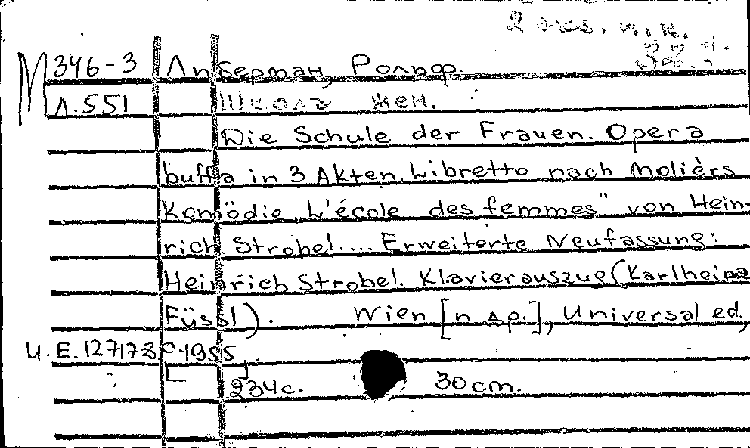 2 экз. н.к.
М 346-3 Либерман, Рольф.
Л.551 Школа жен.
Die Schule der Frauen. Opera
buffa in 3 Akten. Libretto nach Molièrs
Komödie „L'école des femmes" von Hein-
rich Strobel.... Erweiterte Neufassung:
Heinrich Strobel. Klavierauszug (Karlheinz
Füssl). Wien [п.др.], Universal ed,
U.E. 12717 c1955
234c. 30cm.